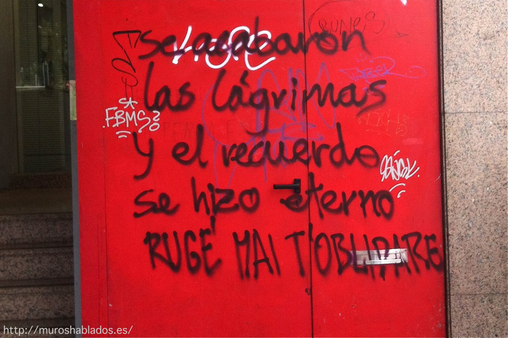 se acabaron
las lágrimas
y el recuerdo
se hizo eterno
RUGE MAI T'OBLIDARÉ
FBMS?
http://muroshablados.es/